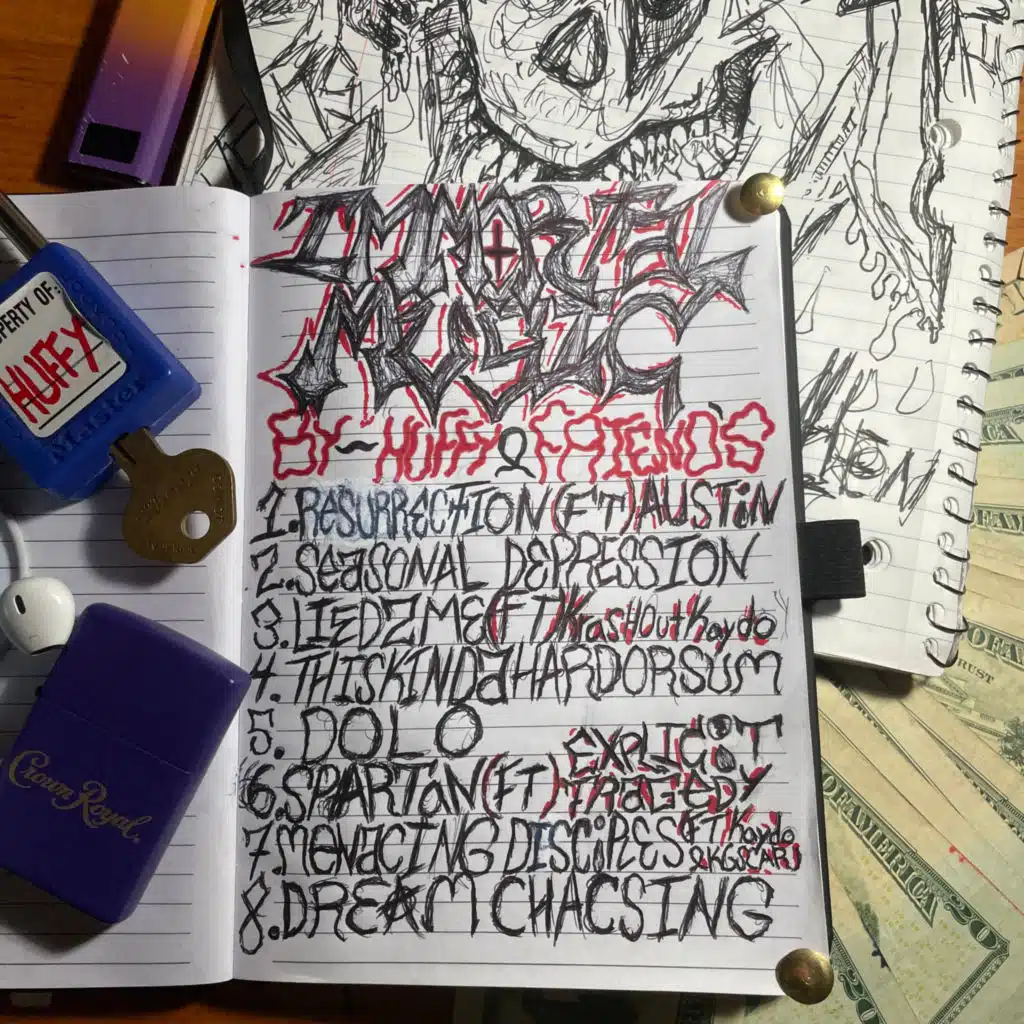 IMMORTEL
MUSIC
BY~HUFFY & FRIENDS
1. RESURRECTION (FT) AUSTiN
2. SEASONAL DEPRESSION
3. LIEDZME (FT) KrasHOutKaydo
4. THISKINDaHARDORSUM
5. DOLO
6. SPARTaN (FT) EXPLICiT TRAGEDY
7. MENaCING DISCiPLES (FT Kaydo
& KGSCAR)
8. DREAM CHACSING
PERTY OF:
HUFFY
Master
Crown Royal
OF AMERICA
TRUST
OF AMERICA
20